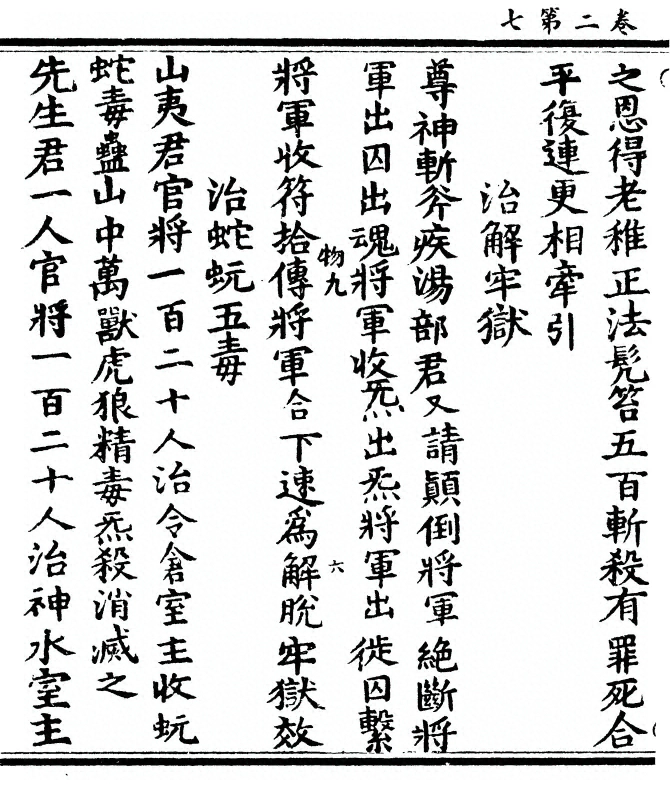 卷二第七
之恩得老稚正法髡笞五百斬殺有罪死合
平復連更相牽引
治解牢獄
尊神斬斧疾湯部君又請顛倒將軍絕斷將
軍出囚出魂將軍收炁出炁將軍出徙囚繫
物九
六
將軍收符拾傳將軍合下速為解脫牢獄效
治蛇蚖五毒
山夷君官將一百二十人治令倉室主收蚖
蛇毒蠱山中萬獸虎狼精毒炁殺消滅之
先生君一人官將一百二十人治神水室主